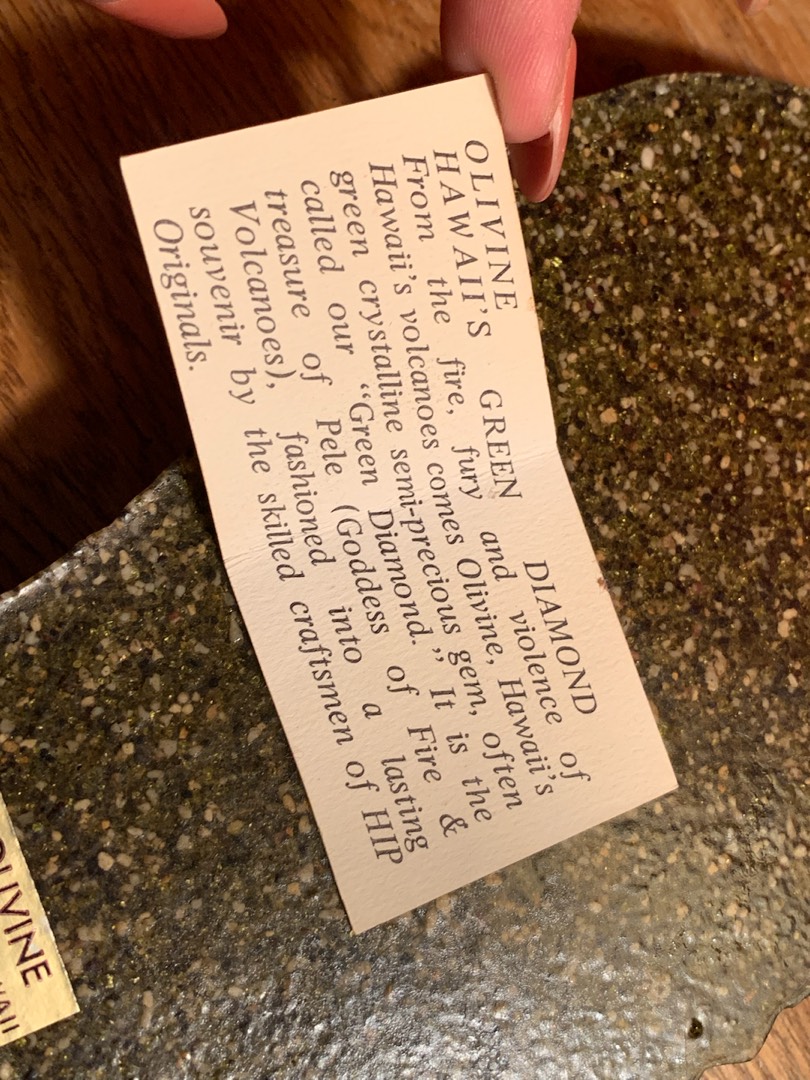 OLIVINE
HAWAII'S GREEN DIAMOND
From the fire, fury and violence of
Hawaii's volcanoes comes Olivine, Hawaii's
green crystalline semi-precious gem, often
called our “Green Diamond.” It is the
treasure of Pele (Goddess of Fire &
Volcanoes), fashioned into a lasting
souvenir by the skilled craftsmen of HIP
Originals.
OLIVINE